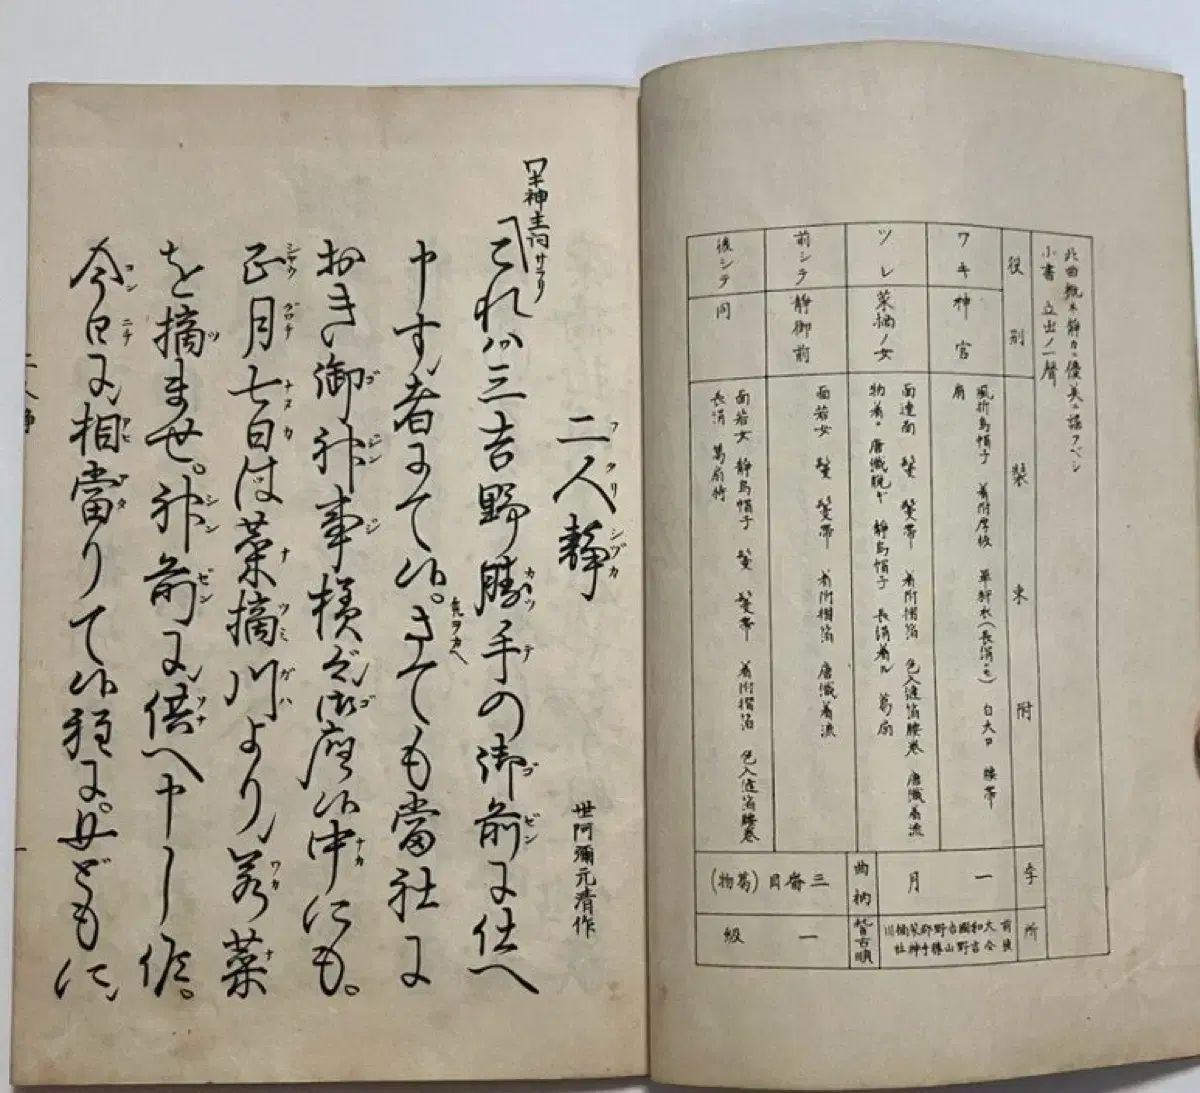 此曲概ネ静カニ優美ニ謡フベシ
小書 立出ノ一聲
役別 装束附 季 所
ワキ 神官
風折烏帽子 着附厚板 單狩衣(長絹ニモ) 白大口 腰帯
扇
ツレ 菜摘ノ女
面連面 鬘 鬘帯 着附摺箔 色入縫箔腰巻 唐織着流
物着ニ 唐織脱ギ 静烏帽子 長絹着ル 葛扇
前シテ 静御前
面若女 鬘 鬘帯 着附摺箔 唐織着流
後シテ 同
面若女 静烏帽子 鬘 鬘帯 着附摺箔 色入縫箔腰巻
長絹 葛扇持
一月
曲柄
三番目(葛物)
稽古順
一級
二人静
フタリシヅカ
世阿彌元清作
ワキ神主詞サラリ
これハ三吉野勝手の御前に仕へ
申す者にて候。さても當社に
おき御神事様々御座候中にも。
正月七日は菜摘川より。若菜
を摘ませ。神前に供へ申し候。
今日に相當りて候程に。女どもに